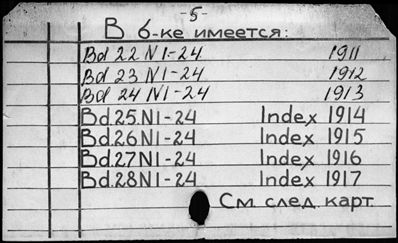 -5-
В б-ке имеется:
Bd 22 N1-24 1911
Bd 23 N1-24 1912
Bd 24 N1-24 1913
Bd.25N1-24 Index 1914
Bd.26N1-24 Index 1915
Bd.27N1-24 Index 1916
Bd.28N1-24 Index 1917
См. след. карт